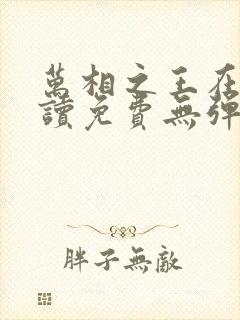 萬相之王在
讀免費無彈
胖子無敵